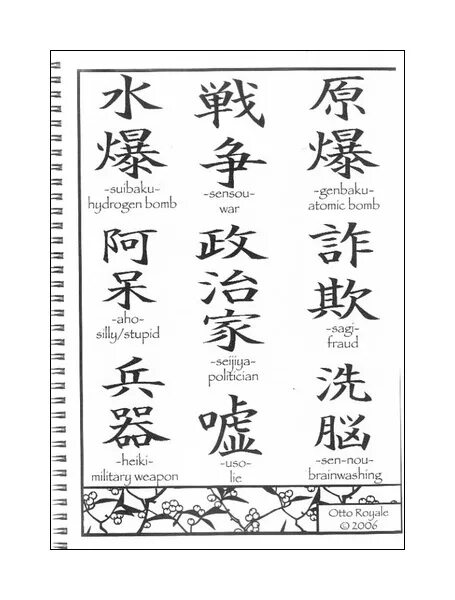 水
爆
-suibaku-
hydrogen bomb
戦
争
-sensou-
war
原
爆
-genbaku-
atomic bomb
阿
呆
-aho-
silly/stupid
政
治
家
-seijiya-
politician
詐
欺
-sagi-
fraud
兵
器
-heiki-
military weapon
嘘
-uso-
lie
洗
脳
-sen-nou-
brainwashing
Otto Royale
© 2006